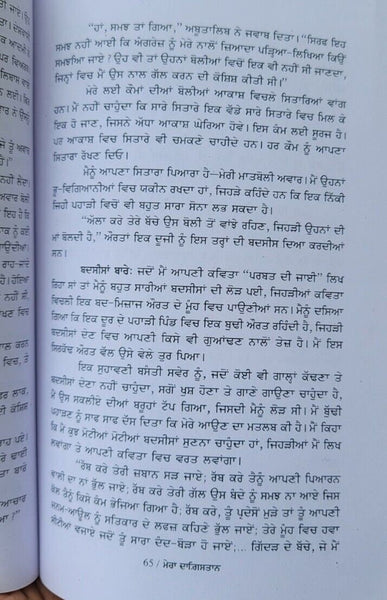 “ਹਾਂ, ਸਮਝ ਤਾਂ ਗਿਆ,” ਅਬੂਤਾਲਿਬ ਨੇ ਜਵਾਬ ਦਿਤਾ। “ਸਿਰਫ ਇਹ
ਸਮਝ ਨਹੀਂ ਆਈ ਕਿ ਅੰਗਰੇਜ਼ ਨੂੰ ਮੇਰੇ ਨਾਲੋਂ ਜ਼ਿਆਦਾ ਪੜ੍ਹਿਆ-ਲਿਖਿਆ ਕਿਉਂ
ਸਮਝਿਆ ਜਾਏ? ਉਹ ਵੀ ਤਾਂ ਉਹਨਾਂ ਬੋਲੀਆਂ ਵਿਚੋਂ ਇਕ ਵੀ ਨਹੀਂ ਸੀ ਜਾਣਦਾ,
ਜਿਨ੍ਹਾਂ ਵਿਚ ਮੈਂ ਉਸ ਨਾਲ ਗੱਲ ਕਰਨ ਦੀ ਕੋਸ਼ਿਸ਼ ਕੀਤੀ ਸੀ।”
ਮੇਰੇ ਲਈ ਕੌਮਾਂ ਦੀਆਂ ਬੋਲੀਆਂ ਆਕਾਸ਼ ਵਿਚਲੇ ਸਿਤਾਰਿਆਂ ਵਾਂਗ
ਹਨ। ਮੈਂ ਨਹੀਂ ਚਾਹੁੰਦਾ ਕਿ ਸਾਰੇ ਸਿਤਾਰੇ ਇਕ ਵੱਡੇ ਸਾਰੇ ਸਿਤਾਰੇ ਵਿਚ ਮਿਲ ਕੇ
ਇਕ ਹੋ ਜਾਣ, ਜਿਸਨੇ ਅੱਧਾ ਆਕਾਸ਼ ਘੇਰਿਆ ਹੋਵੇ। ਇਸ ਕੰਮ ਲਈ ਸੂਰਜ ਹੈ।
ਪਰ ਆਕਾਸ਼ ਵਿਚ ਸਿਤਾਰੇ ਵੀ ਤਾਂ ਚਮਕਣੇ ਚਾਹੀਦੇ ਹਨ। ਹਰ ਕੌਮ ਨੂੰ ਆਪਣਾ
ਸਿਤਾਰਾ ਰੱਖਣ ਦਿਓ।
ਮੈਨੂੰ ਆਪਣਾ ਸਿਤਾਰਾ ਪਿਆਰਾ ਹੈ—ਮੇਰੀ ਮਾਤਬੋਲੀ ਅਵਾਰ। ਮੈਂ ਉਹਨਾਂ
ਭੂ-ਵਿਗਿਆਨੀਆਂ ਵਿਚ ਯਕੀਨ ਰਖਦਾ ਹਾਂ, ਜਿਹੜੇ ਕਹਿੰਦੇ ਹਨ ਕਿ ਇਕ ਨਿੱਕੀ
ਜਿਹੀ ਪਹਾੜੀ ਵਿਚੋਂ ਵੀ ਬਹੁਤ ਸਾਰਾ ਸੋਨਾ ਲਭ ਸਕਦਾ ਹੈ।
“ਅੱਲਾ ਕਰੇ ਤੇਰੇ ਬੱਚੇ ਉਸ ਬੋਲੀ ਤੋਂ ਵਾਂਝੇ ਰਹਿਣ, ਜਿਹੜੀ ਉਹਨਾਂ ਦੀ
ਮਾਂ ਬੋਲਦੀ ਹੈ,” ਔਰਤਾਂ ਇਕ ਦੂਜੀ ਨੂੰ ਇਸ ਤਰ੍ਹਾਂ ਦੀ ਬਦਸੀਸ ਦਿਆ ਕਰਦੀਆਂ
ਸਨ।
ਬਦਸੀਸਾਂ ਬਾਰੇ: ਜਦੋਂ ਮੈਂ ਆਪਣੀ ਕਵਿਤਾ “ਪਰਬਤ ਦੀ ਜਾਈ” ਲਿਖ
ਰਿਹਾ ਸਾਂ ਤਾਂ ਮੈਨੂੰ ਬਹੁਤ ਸਾਰੀਆਂ ਬਦਸੀਸਾਂ ਦੀ ਲੋੜ ਪਈ, ਜਿਹੜੀਆਂ ਕਵਿਤਾ
ਵਿਚਲੀ ਇਕ ਬਦ-ਮਿਜ਼ਾਜ ਔਰਤ ਦੇ ਮੂੰਹ ਵਿਚ ਪਾਉਣੀਆਂ ਸਨ। ਮੈਨੂੰ ਦਸਿਆ
ਗਿਆ ਕਿ ਇਕ ਦੂਰ ਦੇ ਪਹਾੜੀ ਪਿੰਡ ਵਿਚ ਇਕ ਬੁਢੀ ਔਰਤ ਰਹਿੰਦੀ ਹੈ, ਜਿਹੜੀ
ਬਦਸੀਸਾਂ ਦੇਣ ਵਿਚ ਆਪਣੀ ਕਿਸੇ ਵੀ ਗੁਆਂਢਣ ਨਾਲੋਂ ਤੇਜ਼ ਹੈ। ਮੈਂ ਇਸ
ਸਿਰਕੱਢ ਔਰਤ ਵੱਲ ਉਸੇ ਵੇਲੇ ਤੁਰ ਪਿਆ।
ਇਕ ਸੁਹਾਵਣੀ ਬਸੰਤੀ ਸਵੇਰ ਨੂੰ, ਜਦੋਂ ਕੋਈ ਵੀ ਗਾਲ੍ਹਾਂ ਕੱਢਣਾ ਤੇ
ਬਦਸੀਸਾਂ ਦੇਣਾ ਨਹੀਂ ਚਾਹੁੰਦਾ, ਸਗੋਂ ਖੁਸ਼ ਹੋਣਾ ਤੇ ਗਾਣੇ ਗਾਉਣਾ ਚਾਹੁੰਦਾ ਹੈ,
ਮੈਂ ਉਸ ਸਕਲੀਏ ਦੀਆਂ ਬਰੂਹਾਂ ਟੱਪ ਗਿਆ, ਜਿਸਦੀ ਮੈਨੂੰ ਲੋੜ ਸੀ। ਮੈਂ ਬੁੱਢੀ
ਪਹਾੜਣ ਨੂੰ ਸਾਫ ਸਾਫ ਦੱਸ ਦਿਤਾ ਕਿ ਮੇਰੇ ਆਉਣ ਦਾ ਮਤਲਬ ਕੀ ਹੈ। ਮੈਂ ਕਿਹਾ
ਕਿ ਮੈਂ ਕੁਝ ਮੋਟੀਆਂ ਮੋਟੀਆਂ ਬਦਸੀਸਾਂ ਸੁਣਨਾ ਚਾਹੁੰਦਾ ਹਾਂ, ਜਿਹੜੀਆਂ ਮੈਂ ਲਿਖ
ਲਵਾਂਗਾ ਤੇ ਆਪਣੀ ਕਵਿਤਾ ਵਿਚ ਵਰਤ ਲਵਾਂਗਾ।
“ਰੱਬ ਕਰੇ ਤੇਰੀ ਜ਼ਬਾਨ ਸੜ ਜਾਏ; ਰੱਬ ਕਰੇ ਤੈਨੂੰ ਆਪਣੀ ਪਿਆਰਨ
ਵਾਲੀ ਦਾ ਨਾਂ ਭੁੱਲ ਜਾਏ; ਰੱਬ ਕਰੇ ਤੇਰੀ ਗੱਲ ਉਸ ਬੰਦੇ ਨੂੰ ਸਮਝ ਨਾ ਆਏ ਜਿਸ
ਵੱਲ ਤੈਨੂੰ ਕਿਸੇ ਕੰਮ ਭੇਜਿਆ ਗਿਆ ਹੈ; ਰੱਬ ਕਰੇ, ਤੂੰ ਪ੍ਰਦੇਸੋਂ ਮੁੜੇਂ ਤਾਂ ਤੂੰ ਆਪਣੀ
ਜਨਮ-ਆਊਲ ਨੂੰ ਸਤਿਕਾਰ ਦੇ ਲਫਜ਼ ਕਹਿਣੇ ਭੁੱਲ ਜਾਏਂ; ਤੇਰੇ ਮੂੰਹ ਵਿਚ ਹਵਾ
ਸੀਟੀਆਂ ਵਜਾਏ ਜਦੋਂ ਤੂੰ ਸਾਰਾ ਦੰਦ-ਬੋੜਾ ਹੋ ਜਾਏਂ;... ਗਿੱਦੜ ਦੇ ਬੱਚੇ, ਜੇ ਮੈਂ
65/ਮੇਰਾ ਦਾਗਿਸਤਾਨ